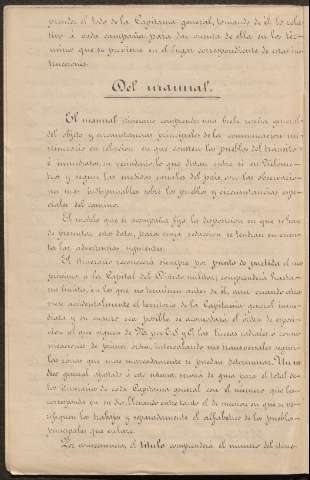 prender el todo de la Capitanía general, tomando de él lo rela-
tivo á cada campaña para dar cuenta de ella en los tér-
minos que se previene en el lugar correspondiente de estas ins-
trucciones.
Del manual.
El manual itinerario comprende una breve reseña general
del objeto y circunstancias principales de la comunicacion ó
itinerario en relacion en que consten los pueblos del transito
é inmediatos, su vecindario, lo que distan entre sí en Kilóme-
tros y segun las medidas usuales del país, con las observacio-
nes mas indispensables sobre los pueblos y circunstancias espe-
ciales del camino.
El modelo que se acompaña fija la disposicion en que se han
de presentar estos datos, para cuya redaccion se tendran en cuen-
ta las advertencias siguientes.
El itinerario reconocerá siempre por punto de partida el mas
próximo á la Capital del Distrito militar, comprendiendo hasta
su límite, en los que no terminen antes de él, aun cuando atra-
viese accidentalmente el territorio de la Capitanía general inme-
diata y en cuanto sea posible se acomodará el órden de esposi-
cion al que sigue de N. por E. S. y O. las lineas radiales ó comu-
nicaciones de primer órden, intercalando sus transversales segun
las zonas que mas marcadamente se puedan determinar. Un ín-
dice general ajustado á este sistema, servirá de guia para el total de
los itinerarios de cada Capitanía general con el número que les
corresponda en su dia, llevando entre tanto el de marcos en que se ve-
rifiquen los trabajos y separadamente el alfabético de los pueblos
principales que enlace.
Por consecuencia, el título comprenderá el número del itine-